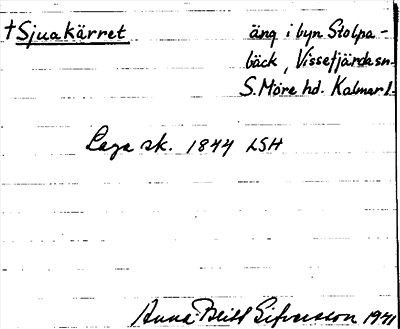 †Sjuakärret äng i byn Stolpa-
bäck, Vissefjärda sn.
S. Möre hd. Kalmar l.
Laga sk. 1844 LSH
Anna Britt Sifversson 1941